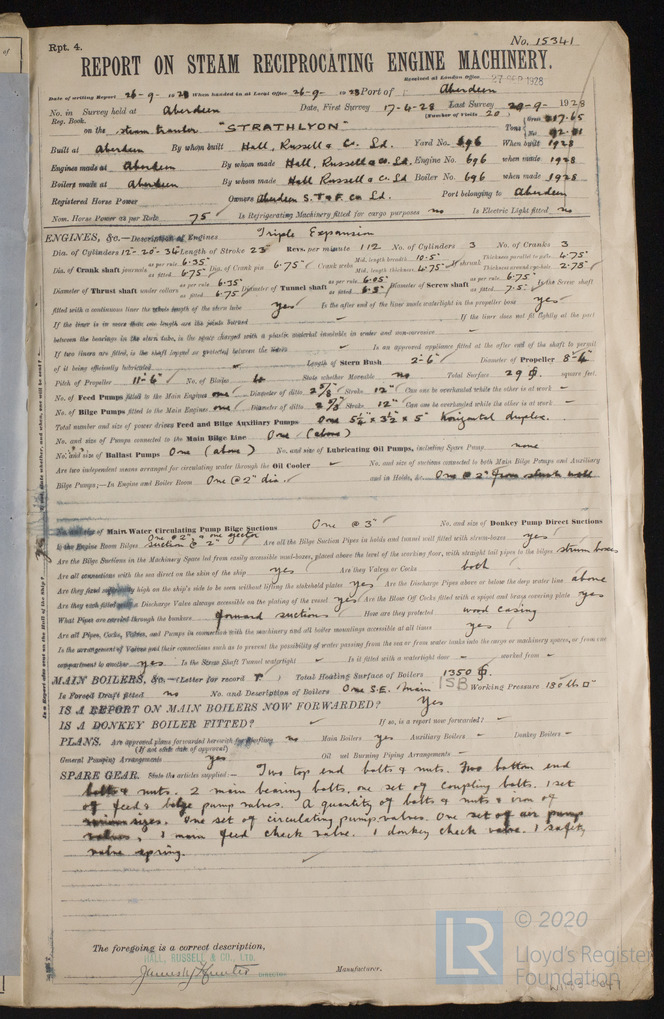 Rpt. 4.
No. 15341
REPORT ON STEAM RECIPROCATING ENGINE MACHINERY.
Received at London Office 27 SEP 1928
Date of writing Report 26-9- 1928 When handed in at Local Office 26-9- 1928 Port of Aberdeen
No. in Survey held at Aberdeen Date, First Survey 17-4-28 Last Survey 1928
Reg. Book. (Number of Visits 20)
on the steam trawler "STRATHLYON" Tons Gross 217.65 Net
Built at Aberdeen By whom built Hall, Russell & Co. Ld. Yard No. 696 When built 1928
Engines made at Aberdeen By whom made Hall, Russell & Co. Ld. Engine No. 696 when made 1928
Boilers made at Aberdeen By whom made Hall Russell & Co Ld Boiler No. 696 when made 1928
Registered Horse Power Owners Aberdeen S. T & F. Co Ld. Port belonging to Aberdeen
Nom. Horse Power as per Rule 75 Is Refrigerating Machinery fitted for cargo purposes no Is Electric Light fitted no
ENGINES, &c.—Description of Engines Triple Expansion
Dia. of Cylinders 12-20-34 Length of Stroke 23 Revs. per minute 112 No. of Cylinders 3 No. of Cranks 3
Dia. of Crank shaft journals as per rule 6.35 as fitted 6.75 Dia. of Crank pin 6.75 Crank webs Mid. length breadth 10.5 Mid. length thickness 4.75 shrunk Thickness parallel to axis 4.75 Thickness around eyehole 2.75
Diameter of Thrust shaft under collars as per rule 6.35 as fitted 6.75 Diameter of Tunnel shaft as per rule 6.05 as fitted Diameter of Screw shaft as per rule 6.75 as fitted 7.5 Is the Screw shaft
fitted with a continuous liner the whole length of the stern tube yes Is the after end of the liner made watertight in the propeller boss yes
If the liner is in more than one length are the joints burned - If the liner does not fit tightly at the part
between the bearings in the stern tube, is the space charged with a plastic material insoluble in water and non-corrosive -
If two liners are fitted, is the shaft lapped or protected between the liners - Is an approved appliance fitted at the after end of the shaft to permit
of it being efficiently lubricated Length of Stern Bush 2'-6" Diameter of Propeller 8'-6"
Pitch of Propeller 11'-6" No. of Blades 4 State whether Moveable no Total Surface 29 square feet.
No. of Feed Pumps fitted to the Main Engines one Diameter of ditto 2 5/8 Stroke 12" Can one be overhauled while the other is at work -
No. of Bilge Pumps fitted to the Main Engines one Diameter of ditto 2 5/8 Stroke 12" Can one be overhauled while the other is at work -
Total number and size of power driven Feed and Bilge Auxiliary Pumps One 5¼" x 3½" x 5" Horizontal duplex.
No. and size of Pumps connected to the Main Bilge Line One (above)
No. and size of Ballast Pumps One (above) No. and size of Lubricating Oil Pumps, including Spare Pump none
Are two independent means arranged for circulating water through the Oil Cooler - No. and size of suctions connected to both Main Bilge Pumps and Auxiliary
Bilge Pumps;—In Engine and Boiler Room One @ 2" dia. and in Holds, &c. One @ 2" from slush well
No. and size of Main Water Circulating Pump Bilge Suctions One @ 3" No. and size of Donkey Pump Direct Suctions
to the Engine Room Bilges One @ 2" & one ejector suction @ 2" Are all the Bilge Suction Pipes in holds and tunnel well fitted with strum-boxes yes
Are the Bilge Suctions in the Machinery Space led from easily accessible mud-boxes, placed above the level of the working floor, with straight tail pipes to the bilges strum boxes
Are all connections with the sea direct on the skin of the ship yes Are they Valves or Cocks both
Are they fixed sufficiently high on the ship's side to be seen without lifting the stokehold plates yes Are the Discharge Pipes above or below the deep water line above
Are they each fitted with a Discharge Valve always accessible on the plating of the vessel yes Are the Blow Off Cocks fitted with a spigot and brass covering plate yes
What Pipes are carried through the bunkers forward suctions How are they protected wood casing
Are all Pipes, Cocks, Valves, and Pumps in connection with the machinery and all boiler mountings accessible at all times yes
Is the arrangement of Valves and their connections such as to prevent the possibility of water passing from the sea or from water tanks into the cargo or machinery spaces, or from one
compartment to another yes Is the Screw Shaft Tunnel watertight - Is it fitted with a watertight door - worked from -
MAIN BOILERS, &c.—(Letter for record) Total Heating Surface of Boilers 1350
ISB
Is Forced Draft fitted no No. and Description of Boilers One S.E. main Working Pressure 180 lb
IS A REPORT ON MAIN BOILERS NOW FORWARDED? Yes
IS A DONKEY BOILER FITTED? - If so, is a report now forwarded? -
PLANS. Are approved plans forwarded herewith for Shafting no Main Boilers yes Auxiliary Boilers - Donkey Boilers -
(If not state date of approval)
General Pumping Arrangements yes Oil fuel Burning Piping Arrangements -
SPARE GEAR. State the articles supplied:— Two top end bolts & nuts. Two bottom end
bolts & nuts. 2 main bearing bolts, one set of coupling bolts. 1 set
of feed & bilge pump valves. A quantity of bolts & nuts & iron of
various sizes. One set of circulating pump valves. One set of air pump
valves, 1 main feed check valve. 1 donkey check valve. 1 safety
valve spring.
The foregoing is a correct description,
HALL, RUSSELL & CO., LTD.
DIRECTOR Manufacturer.
LR © 2020
Lloyd's Register
Foundation